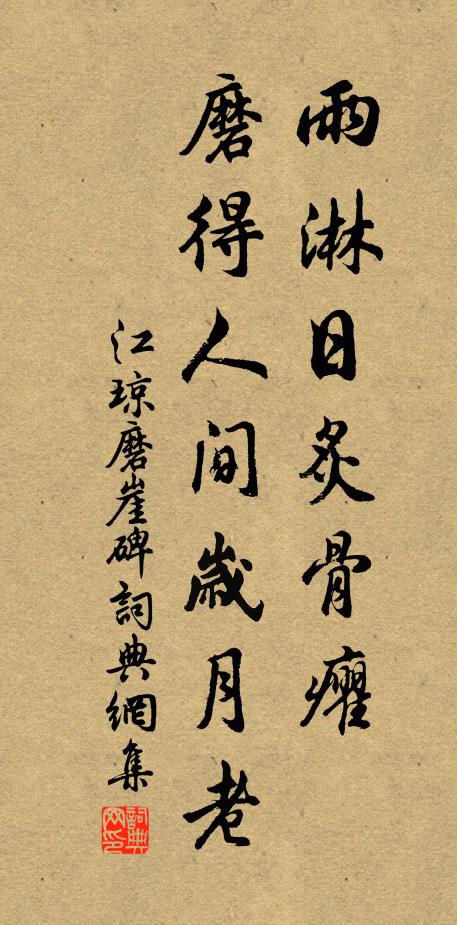 雨淋日炙骨癯
磨得人間歲月老
江琼磨崖碑詞典網集
詞典网印